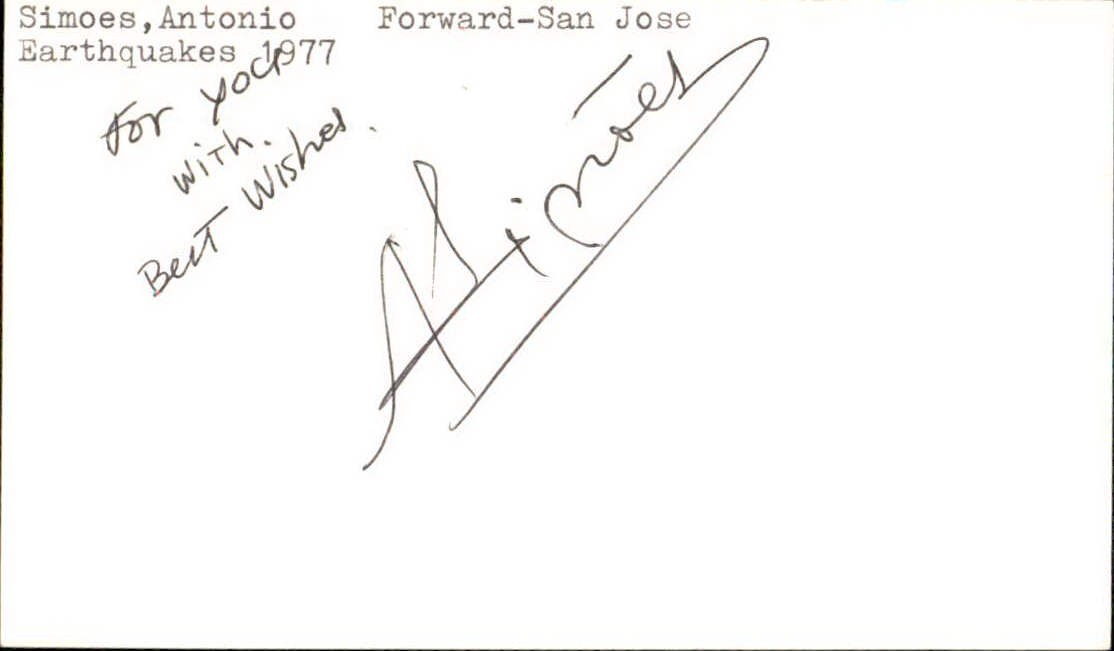 Simoes,Antonio Forward-San Jose
Earthquakes 1977
For you
with.
Best Wishes.
A Simões